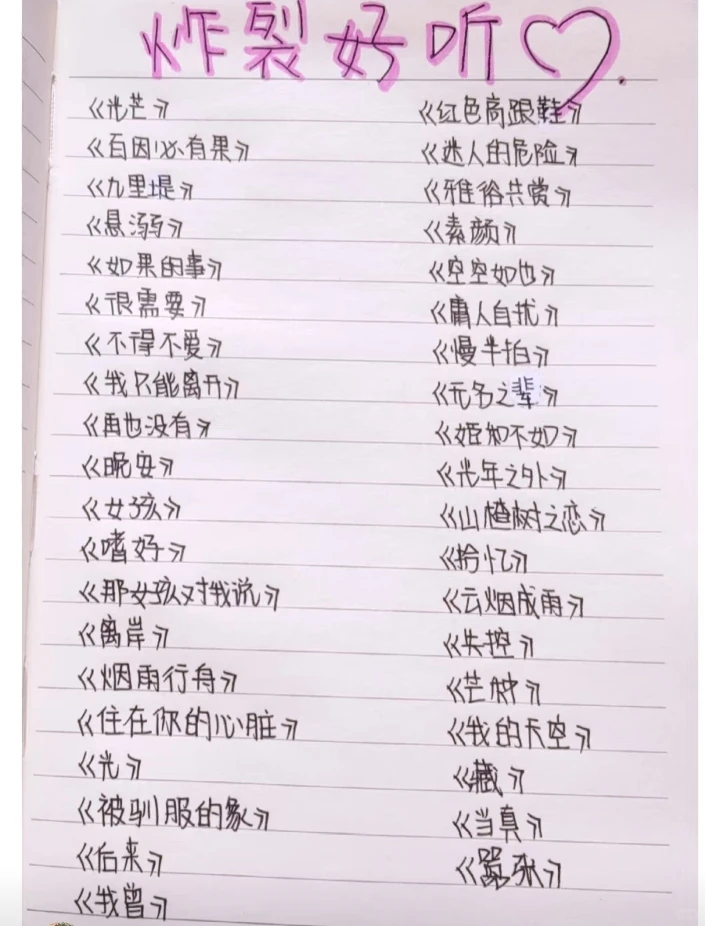 炸裂好听
《光芒》
《百因必有果》
《九里堤》
《悬溺》
《如果的事》
《很需要》
《不得不爱》
《我只能离开》
《再也没有》
《晚安》
《女孩》
《嗜好》
《那女孩对我说》
《离岸》
《烟雨行舟》
《住在你的心脏》
《光》
《被驯服的象》
《后来》
《我曾》
《红色高跟鞋》
《迷人的危险》
《雅俗共赏》
《素颜》
《空空如也》
《庸人自扰》
《慢半拍》
《无名之辈》
《姬和不如》
《光年之外》
《山楂树之恋》
《拾忆》
《云烟成雨》
《失控》
《芒种》
《我的天空》
《藏》
《当真》
《嚣张》